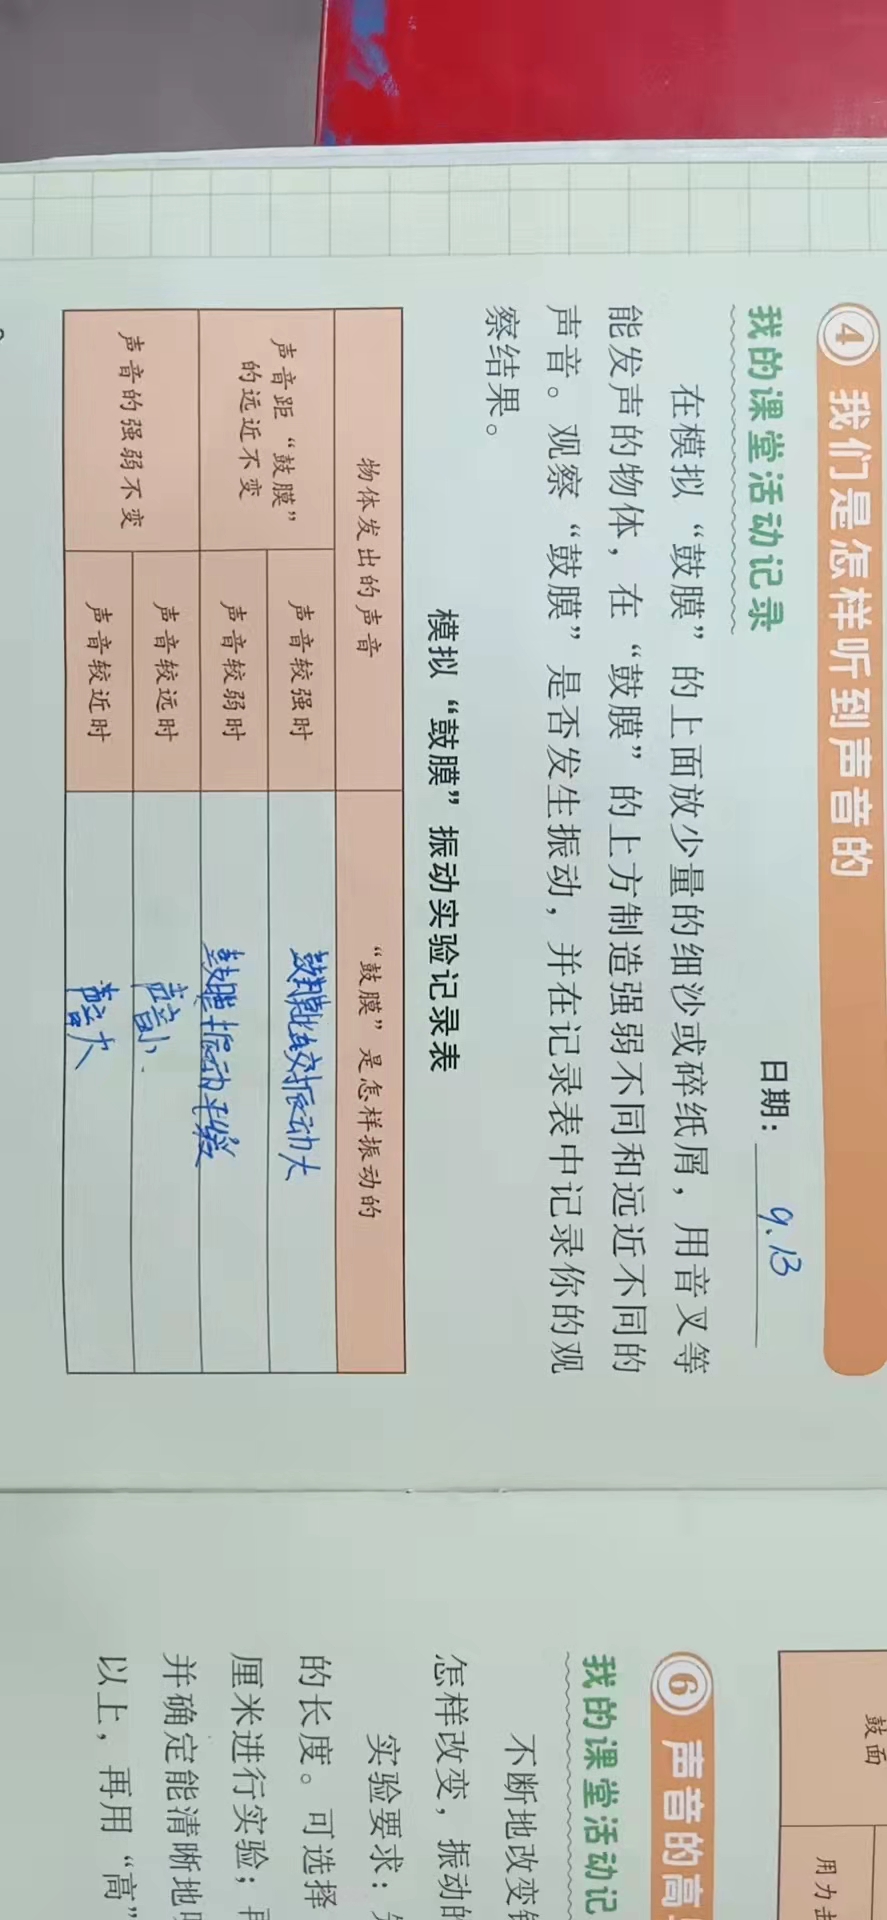 ④ 我们是怎样听到声音的
我的课堂活动记录
日期：9.13
在模拟“鼓膜”的上面放少量的细沙或碎纸屑，用音叉等
能发声的物体，在“鼓膜”的上方制造强弱不同和远近不同的
声音。观察“鼓膜”是否发生振动，并在记录表中记录你的观
察结果。
模拟“鼓膜”振动实验记录表
物体发出的声音 “鼓膜”是怎样振动的
声音距“鼓膜”
的远近不变
声音较强时 振动大
声音较弱时 鼓膜振动平缓
声音的强弱不变
声音较远时 声音小
声音较近时 声音大
鼓面
用力
⑥ 声音的高
我的课堂活动记
不断地改变
怎样改变，振动的
实验要求：
的长度。可选择
厘米进行实验；再
并确定能清晰地
以上，再用“高”